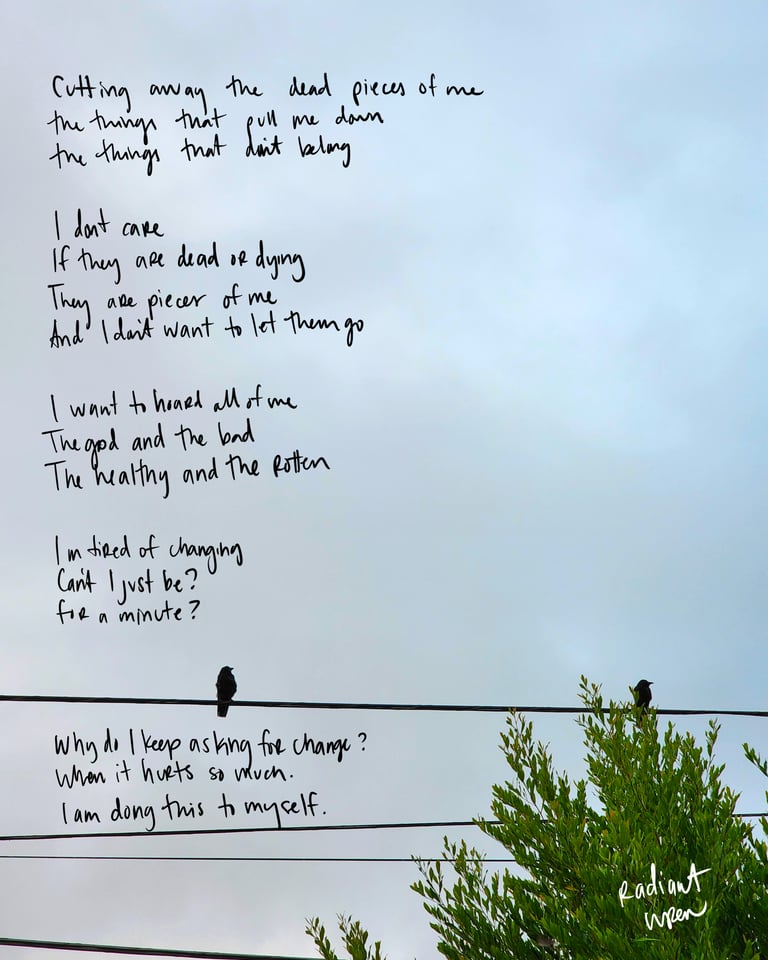 Cutting away the dead pieces of me
the things that pull me down
the things that don't belong
I dont care
If they are dead or dying
They are pieces of me
And I don't want to let them go
I want to hoard all of me
The good and the bad
The healthy and the rotten
Im tired of changing
Can't I just be?
for a minute?
Why do I keep asking for change?
When it hurts so much.
I am dong this to myself.
Radiant
Wren